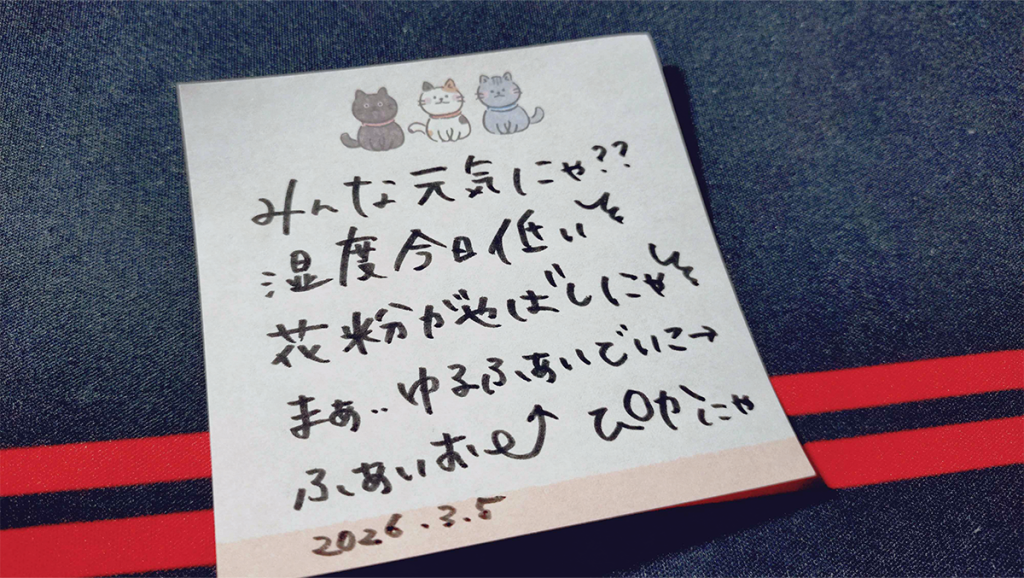 みんな元気にゃ??
湿度今日低い
花粉がやばしにゃ
まぁ‥ゆるふぁいでいこ→
ふぁいおー⤴ ぴかにゃ
2026.3.5